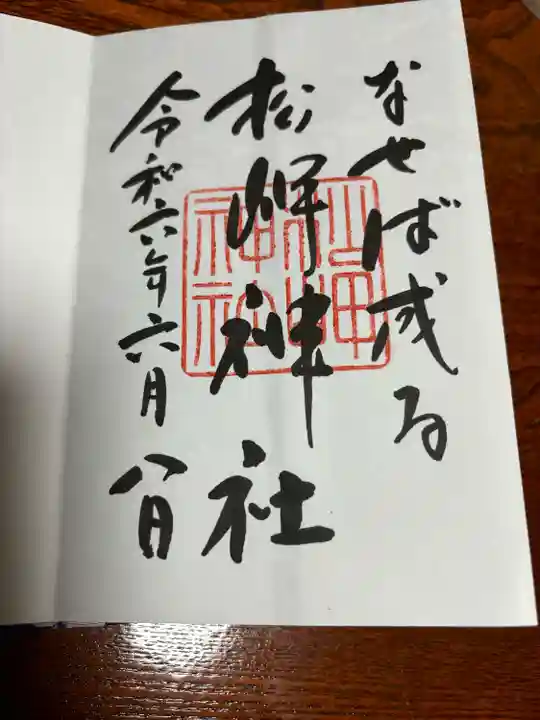 なせば成る
松岬神社
令和六年六月八日
松岬
神社